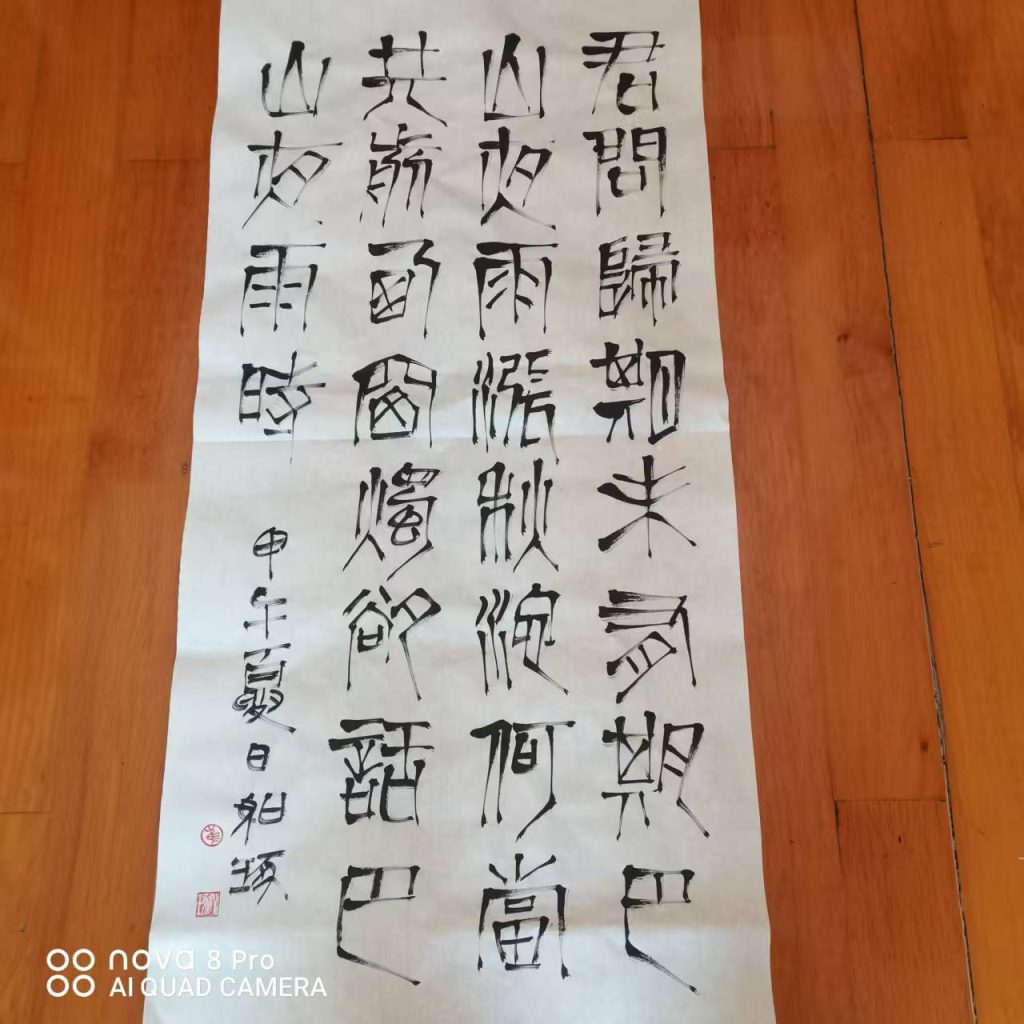 君問歸期未有期巴
山夜雨漲秋池何當
共剪西窗燭欲話巴
山夜雨時
甲午夏日
nova 8 Pro
AI QUAD CAMERA